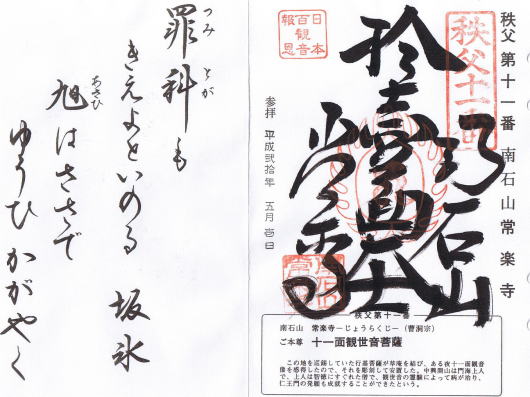 秩父第十一番 南石山常楽寺
秩父十一番
日本
百観音
報恩
南石山
拾壹面大士
常楽寺
参拝 平成弐拾年 五月 壱日
罪科も
つみ とが
きえよといのる 坂氷
旭はささで
あさひ
ゆうひ かがやく
秩父第十一番
南石山 常楽寺―じょうらくじ―(曹洞宗)
ご本尊 十一面観世音菩薩
この地を巡錫していた行基菩薩が草庵を結び、ある夜十一面観音
像を感得したので、それを彫刻して安置した。中興開山は門海上人
で、上人は智徳にすぐれた僧で、観世音の霊験によって病が治り、
仁王門の発願も成就することができたという。